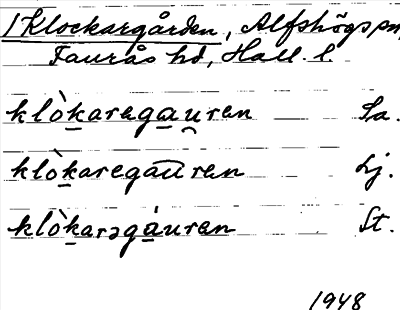 /Klockargården, Alfshögs sn,
Faurås hd, Hall. l.
klò̱karega̱u̯ren Sa.
klòḵaregau͡ren Lj.
klòḵarəgá̱uren St.
1948